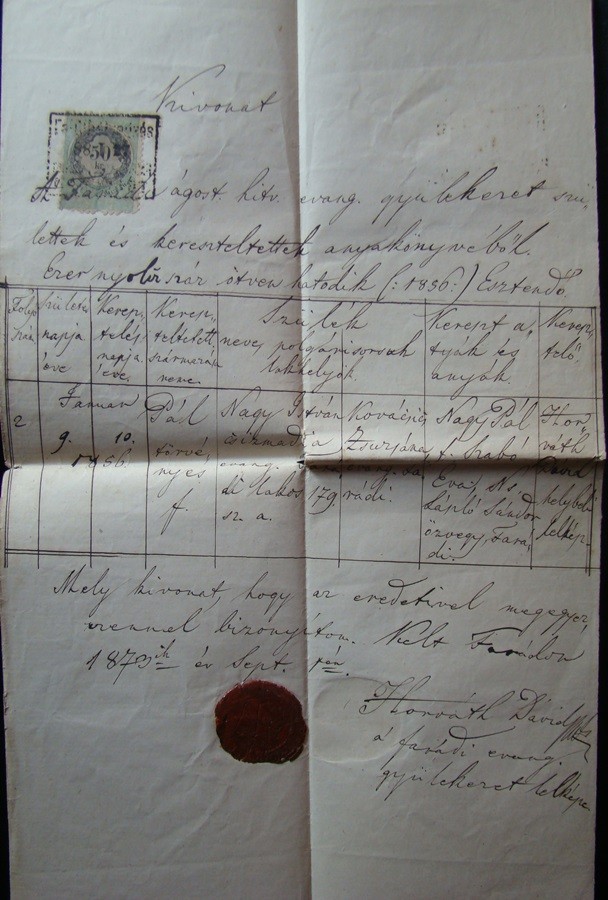 Kivonat
50
A Farádi ágost. hitv. evang. gyülekezet szü-
lettek és kereszteltettek anyakönyvéből.
Ezer nyolcz száz ötven hatodik (: 1856 :) Esztendő.
Folyó szám
születés napja éve
Keresz- telés napja éve
Keresz- teltetett neve
Szülék neve, polgári sorsok lakhelyök
Kereszt a- tyák és anyák
Keresz- telő
2
Januar
9. 10.
1856.
Pál törvé- nyes f.
Nagy István csizmadia evang. lakos 179 sz. a.
Zsuzsána
Nagy Pál f. Szabó Eva, Ns. László Sándor özvegy, Fará- di.
Hor- váth David helybeli lelkész
Mely kivonat, hogy az eredetivel megegyez,
ezennel bizonyítom. Kelt Farádon
1873ik év Sept.
Horváth Dávid
a farádi evang.
gyülekezet lelkésze